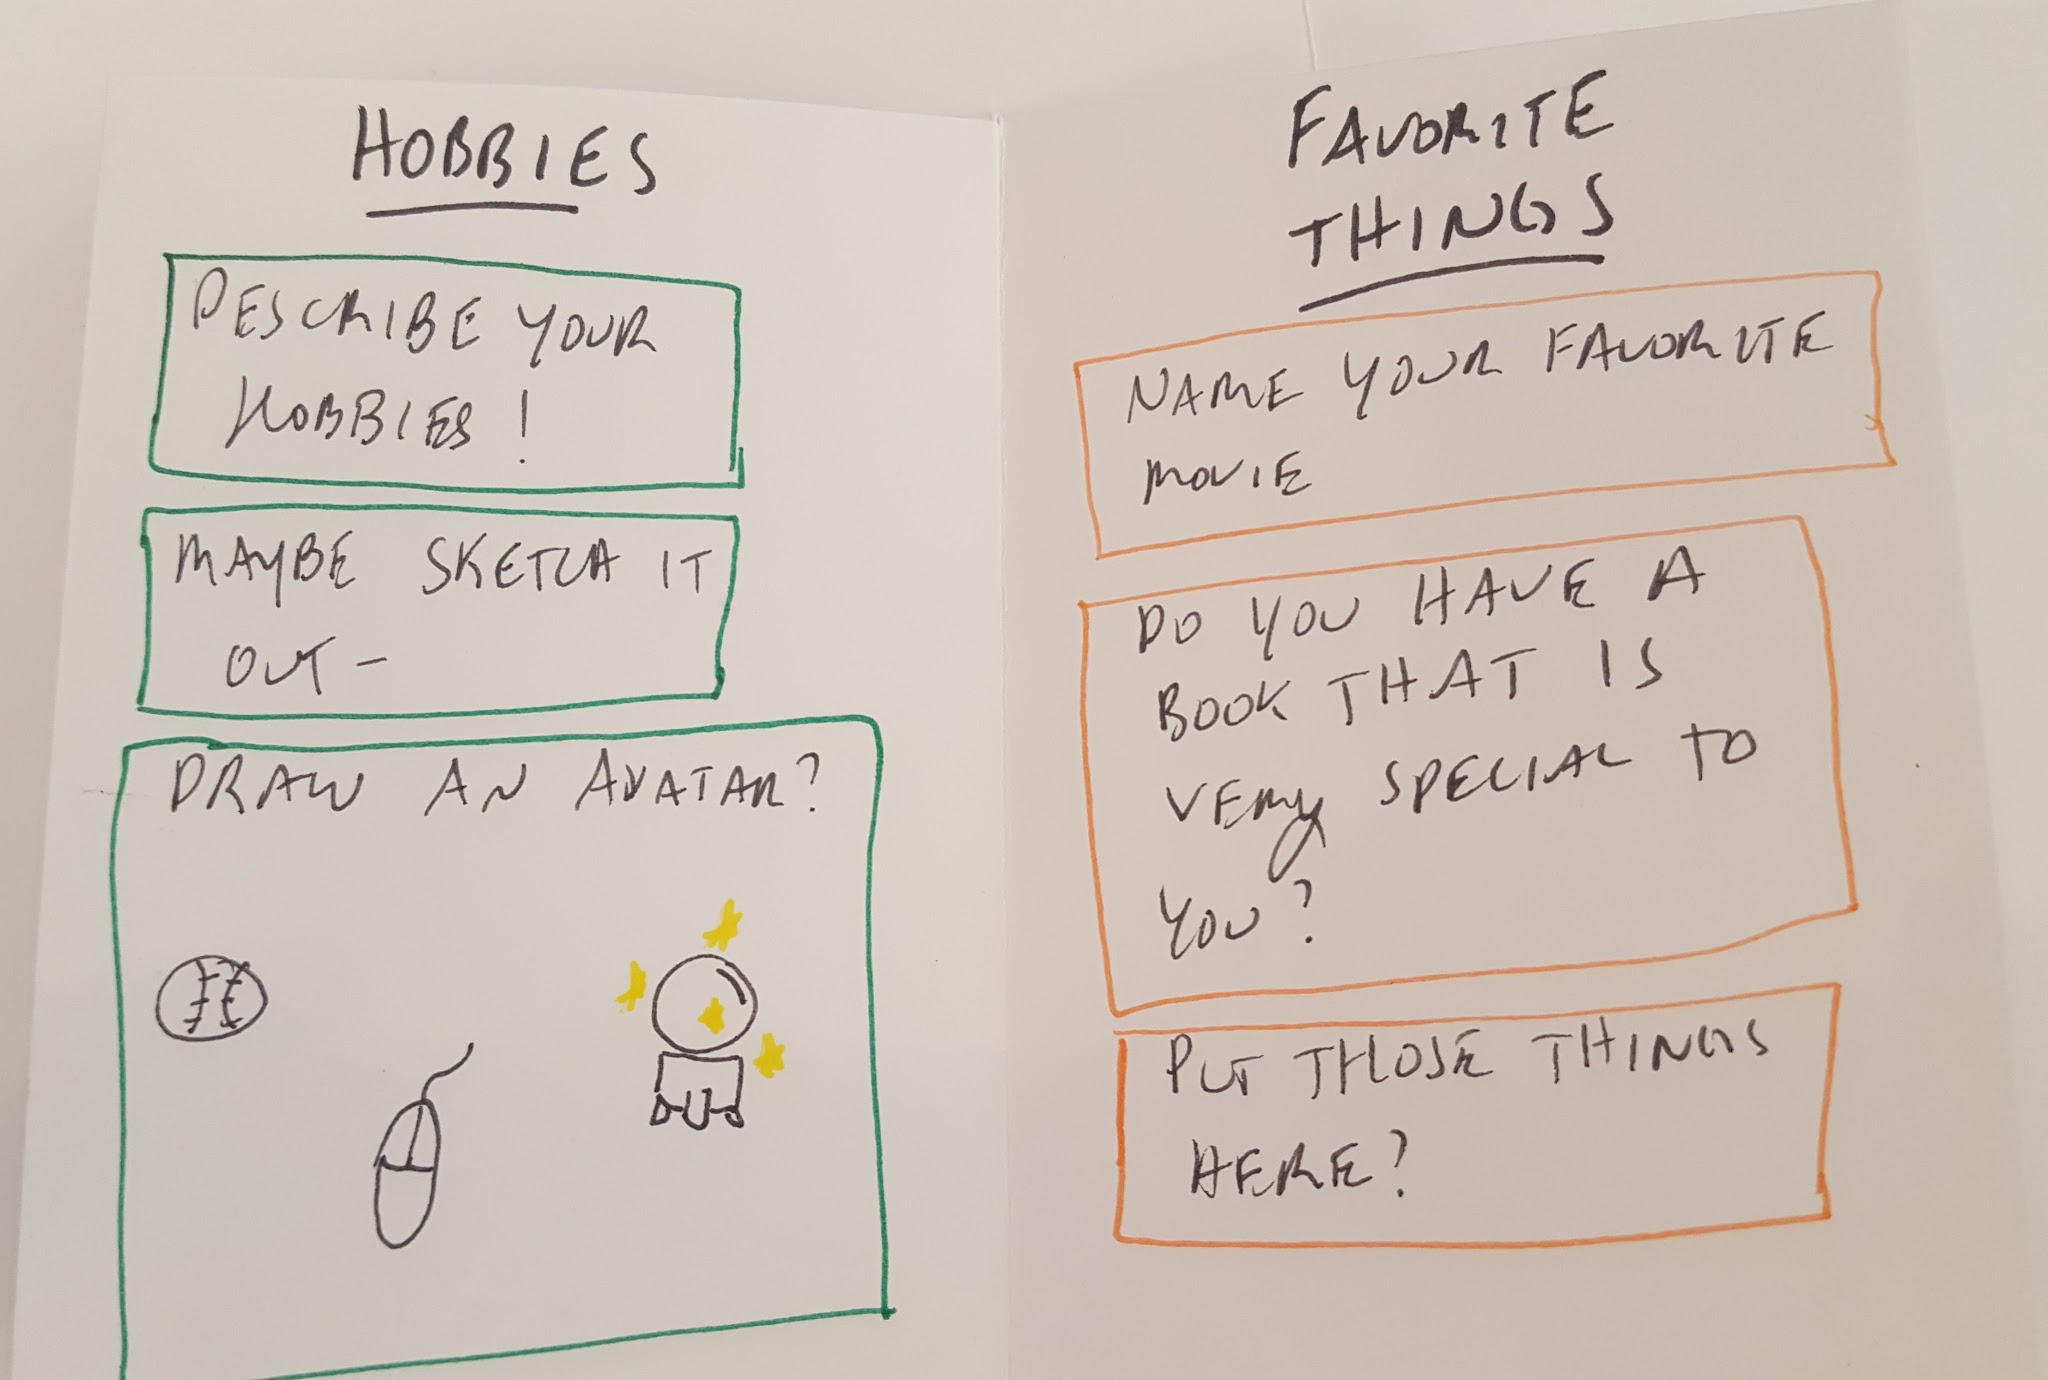 HOBBIES
DESCRIBE YOUR
HOBBIES!
MAYBE SKETCH IT
OUT -
DRAW AN AVATAR?
FAVORITE
THINGS
NAME YOUR FAVORITE
MOVIE
DO YOU HAVE A
BOOK THAT IS
VERY SPECIAL TO
YOU?
PUT THOSE THINGS
HERE?